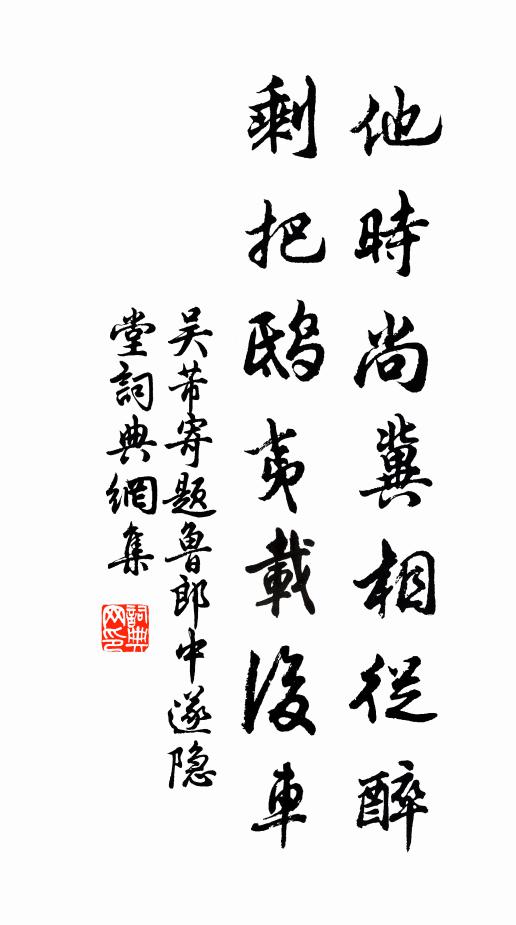 他時尚冀相從醉
剩把鴟夷載後車
吴芾寄题魯郎中遂隐
堂詞典網集
詞典网印